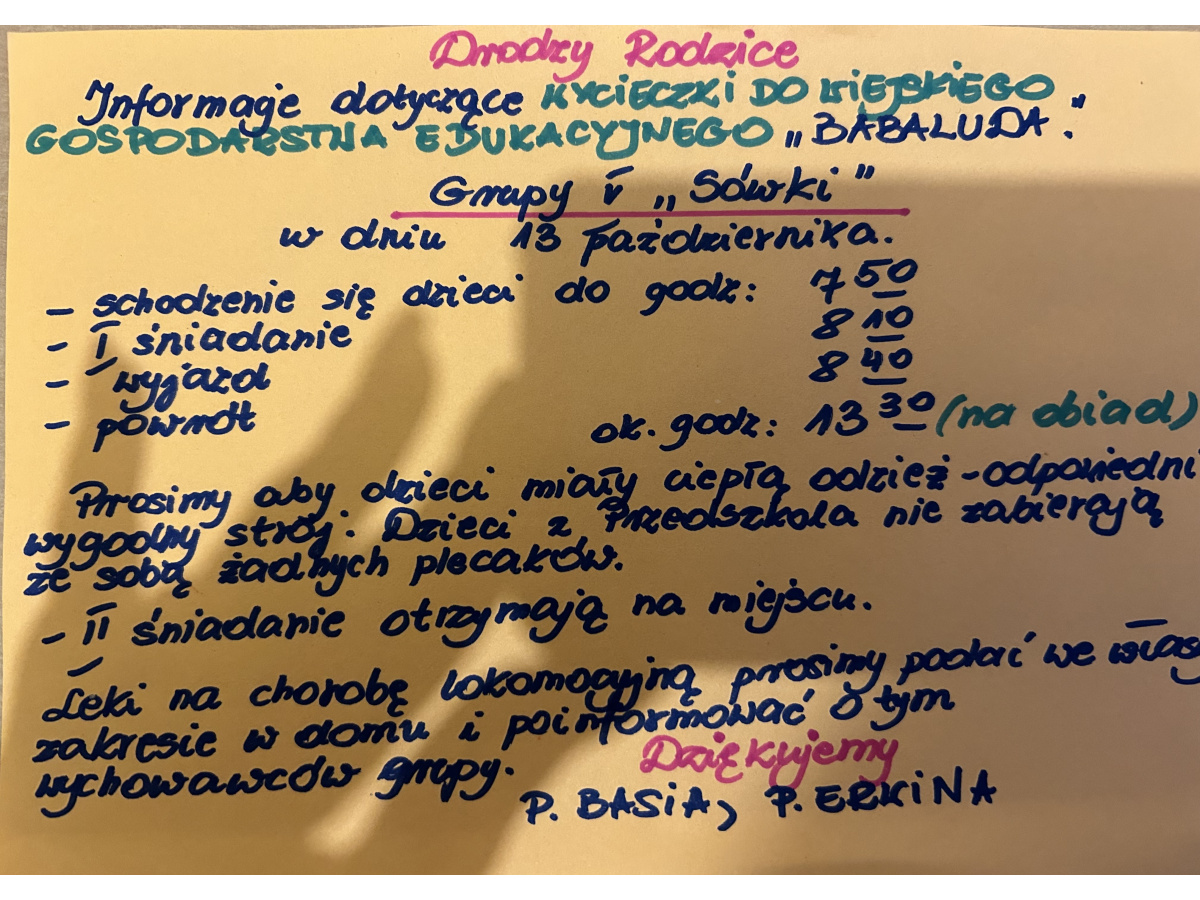 Drodzy Rodzice
Informacje dotyczące WYCIECZKI DO WIEJSKIEGO
GOSPODARSTWA EDUKACYJNEGO „BABALUDA."
Grupy V „Sówki"
w dniu 13 października.
- schodzenie się dzieci do godz: 7 50
- I śniadanie 8 10
- wyjazd 8 40
- powrót ok. godz: 13 30 (na obiad)
Prosimy aby dzieci miały ciepłą odzież - odpowiedni
wygodny strój. Dzieci z Przedszkola nie zabierają
ze sobą żadnych plecaków.
- II śniadanie otrzymają na miejscu.
Leki na chorobę lokomocyjną prosimy podać we własny
zakresie w domu i poinformować o tym
wychowawców grupy.
Dziękujemy
P. BASIA, P. ERKINA